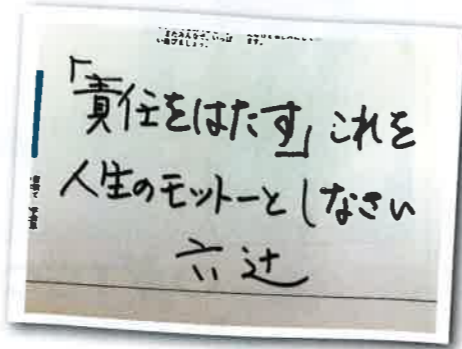 「責任をはたす」これを
人生のモットーとしなさい
六辻